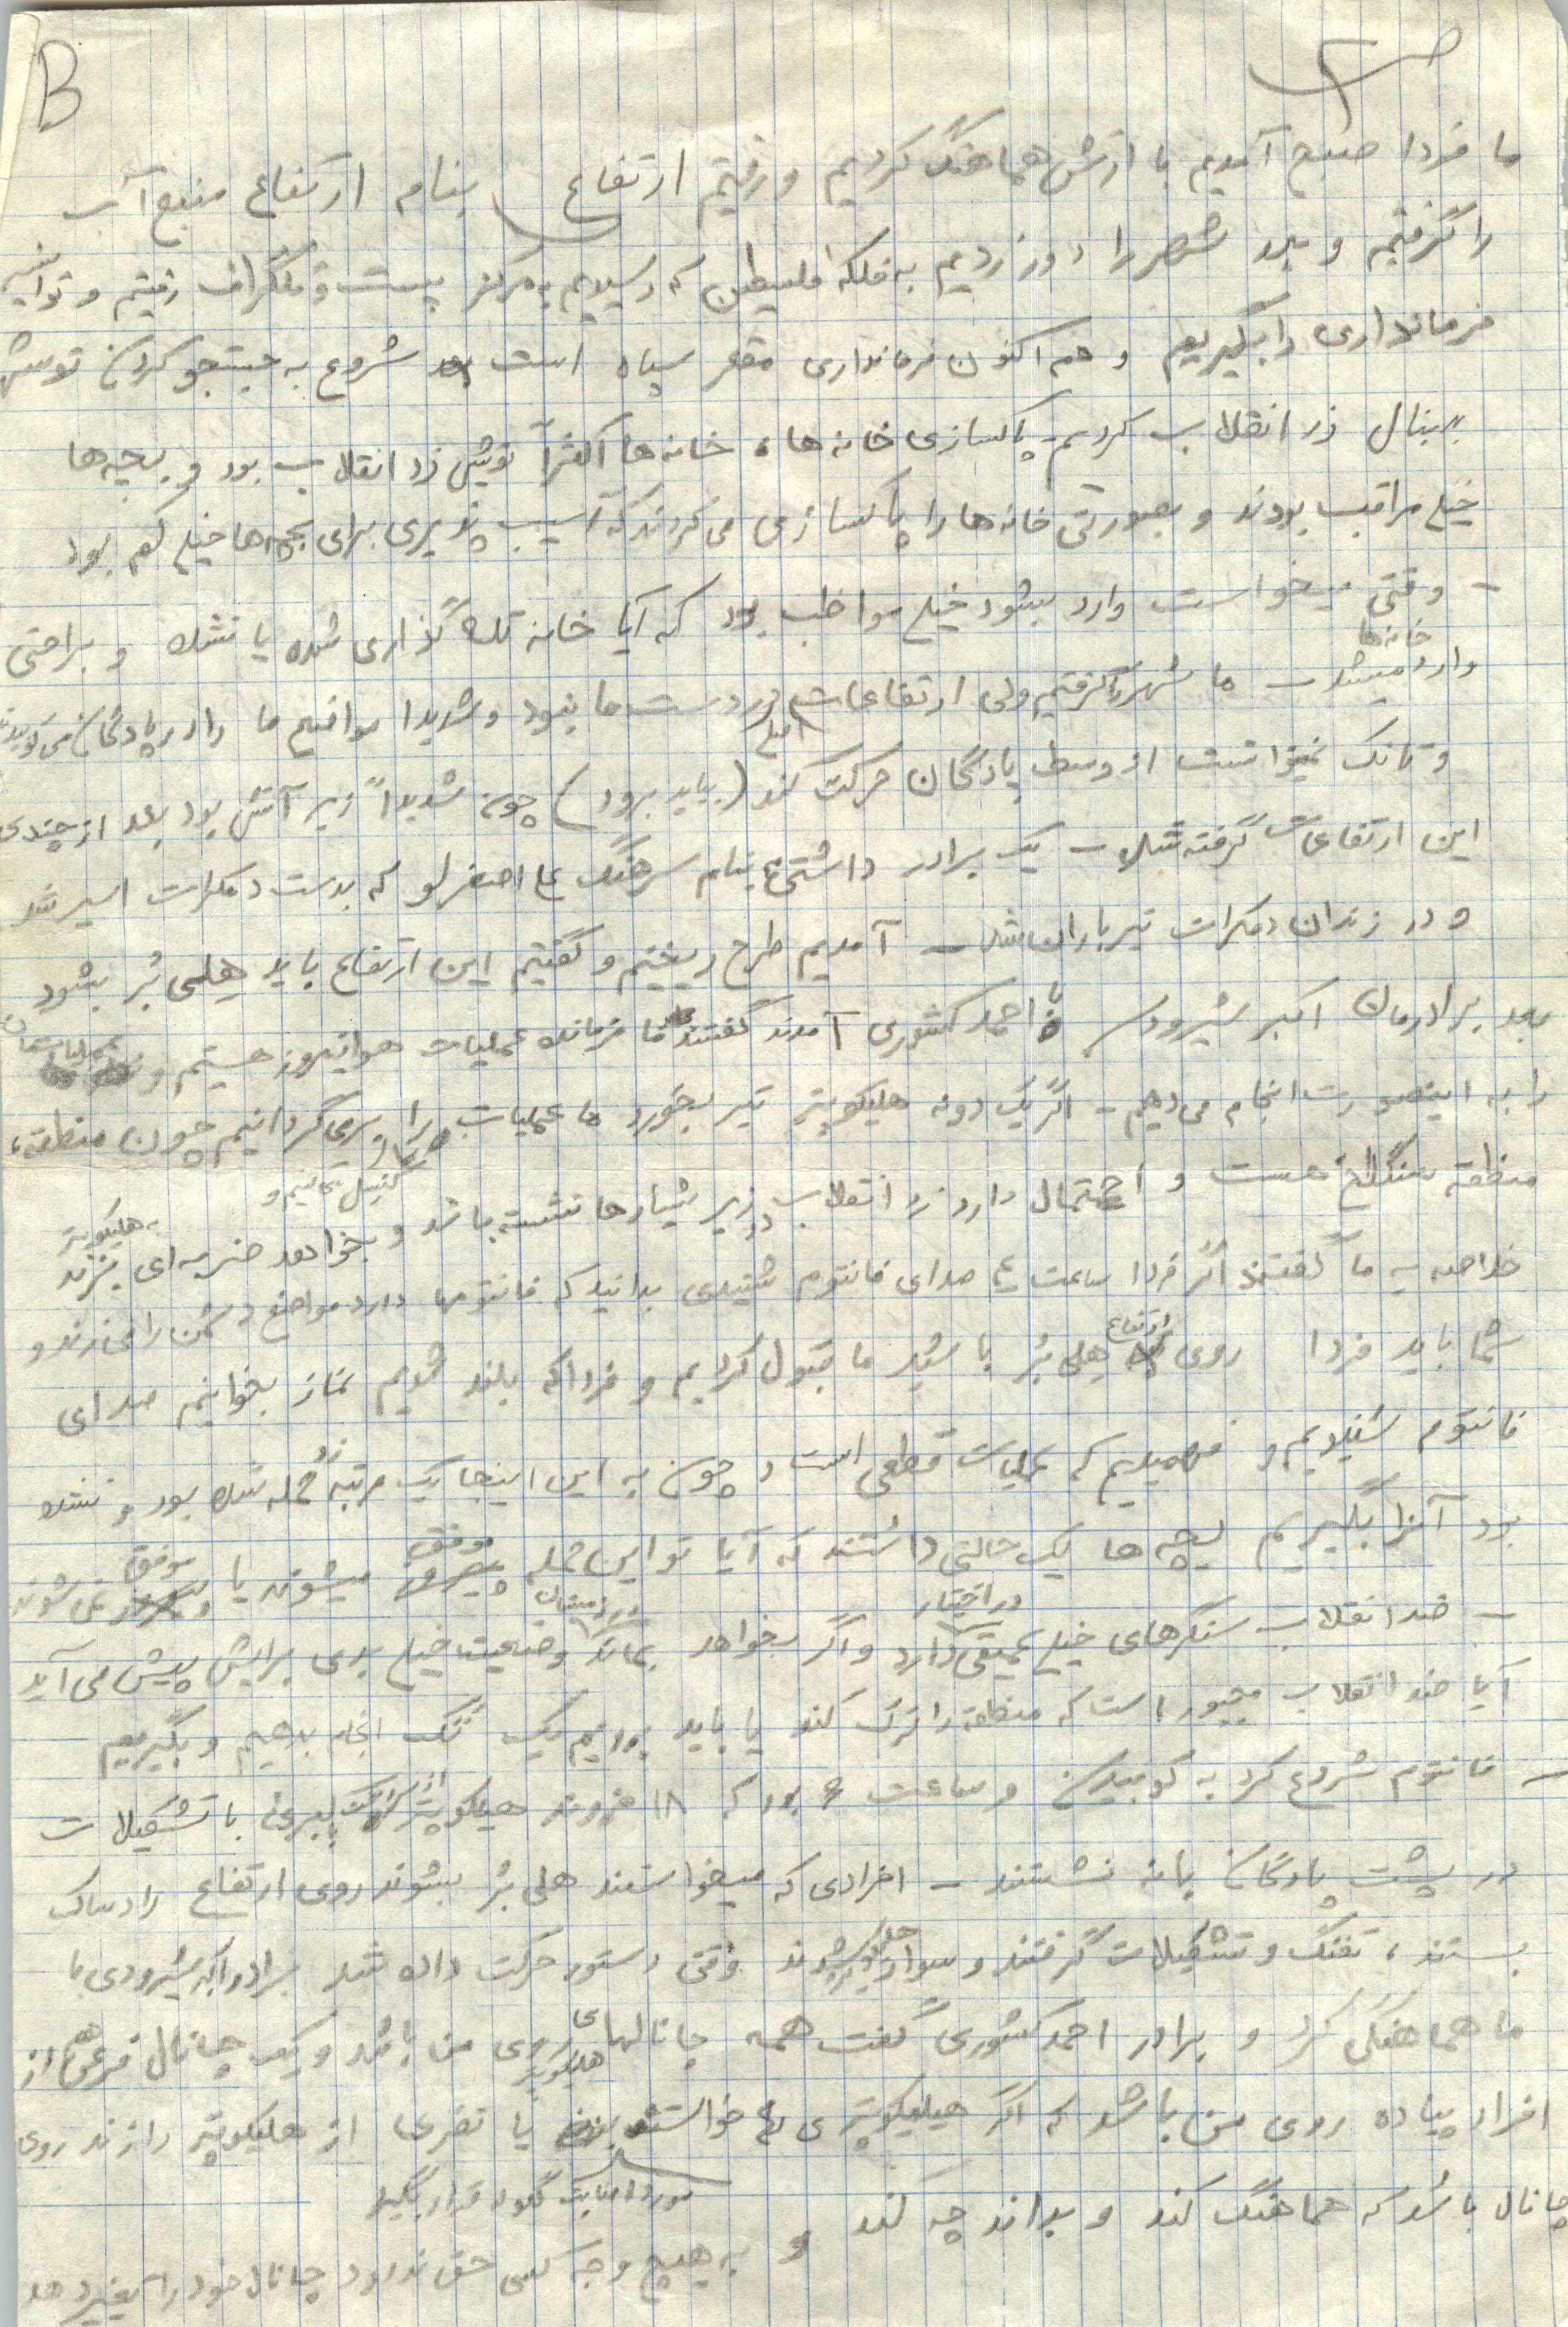 B
ما فردا صبح آمدیم با ارتش هماهنگ کردیم و رفتیم ارتفاع بنام ارتفاع منبع آب
را گرفتیم و بعد شهر را دور زدیم به فلکه فلسطین که رسیدیم به مرکز پست و تلگراف رفتیم و توانستیم
فرمانداری را بگیریم و هم اکنون فرمانداری مقر سپاه است شروع به جستجو کردن توش
بدنبال ضد انقلاب کردیم - پاکسازی خانه ها، خانه ها اکثراً توش ضد انقلاب بود و بچه ها
خیلی مراقب بودند و بصورتی خانه ها را پاکسازی می کردند که آسیب پذیری برای بچه ها خیلی کم بود
- وقتی میخواست وارد بشود خیلی مواظب بود که آیا خانه تله گذاری شده یا نشده و براحتی
خانه ها
وارد میشد - ما شهر را گرفتیم ولی ارتفاعات در دست ما نبود و شدیدا مواضع ما را در پادگان می کوبیدند
و تانک نمیتوانست از وسط پادگان حرکت کند (بیاید برود) چون شدیداً زیر آتش بود بعد از چندی
این ارتفاعات گرفته شد - یک برادر داشتیم بنام سرهنگ علی اصغرلو که بدست دمکرات اسیر شد
و در زندان دمکرات تیرباران شد - آمدیم طرح ریختیم و گفتیم این ارتفاع باید هلی بُر بشود
بعد برادرمان اکبر شیرودی با احمد کشوری آمدند گفتند ما فرمانده عملیات هوانیروز هستیم و عملیاتمان
را به اینصورت انجام می دهیم - اگر یک دونه هلیکوپتر تیر بخورد ما عملیات را برمی گردانیم چون منطقه،
کنسل می کنیم و
منطقه سنگلاخ هست و احتمال دارد ضد انقلاب در زیر شیارها نشسته باشد و بخواهد ضربه ای بزند
به هلیکوپتر
خلاصه به ما گفتند اگر فردا ساعت ۴ صدای فانتوم شنیدی بدانید که فانتومها دارد مواضع دشمن را می زند و
شما باید فردا روی ارتفاع هلی بُر باشید ما قبول کردیم و فردا که بلند شدیم نماز بخوانیم صدای
فانتوم شنیدیم و فهمیدیم که عملیات قطعی است و چون به این اینجا یک مرتبه حمله شده بود و نشده
بود آنرا بگیریم بچه ها یک حالتی داشتند که آیا تو این حمله موفق میشوند یا موفق نمی شوند
- ضد انقلاب سنگرهای خیلی عمیقی در اختیار دارد و اگر بخواهد در زمستان بماند وضعیت خیلی بدی برایش پیش می آید
آیا ضد انقلاب مجبور است که منطقه را ترک کند یا باید برویم یک تک انجام بدهیم و بگیریم
- فانتوم شروع کرد به کوبیدن و ساعت ۶ بود که ۱۸ فروند هلیکوپتر با تشکیلات
در پشت پادگان بانه نشستند - افرادی که میخواستند هلی بُر بشوند روی ارتفاع را دستک
بستند، تفنگ و تشکیلات گرفتند و سوار شوند وقتی دستور حرکت داده شد برادر اکبر شیرودی با
ما هماهنگی کرد و برادر احمد کشوری گفت همه چانالهای هلیکوپتر روی من باشد و یک چانال فرعی هم از
افراد پیاده روی من باشد که اگر هلیکوپتری خواستند یا نفری از هلیکوپتر را زدند روی
مورد اصابت گلوله قرار بگیرد
چانال باشد که هماهنگ کند و بداند چه کند و به هیچ وجه کسی حق ندارد چانال خود را تغییر دهد